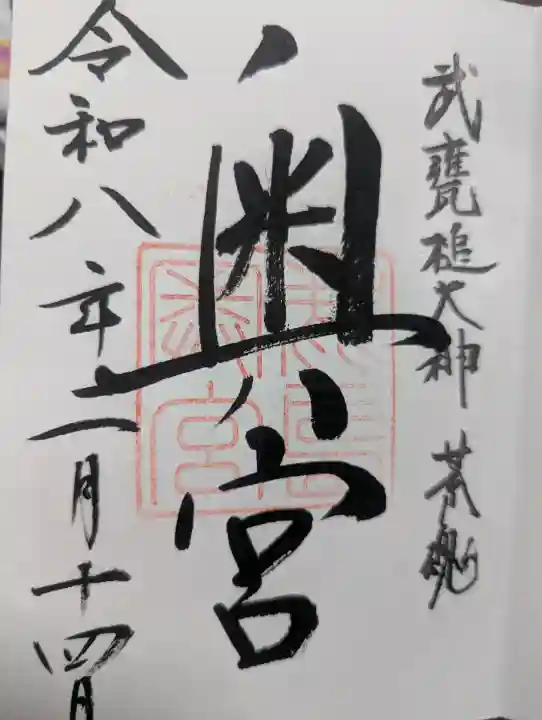 武甕槌大神 荒魂
奥宮
鹿島奥宮
令和八年二月十四日